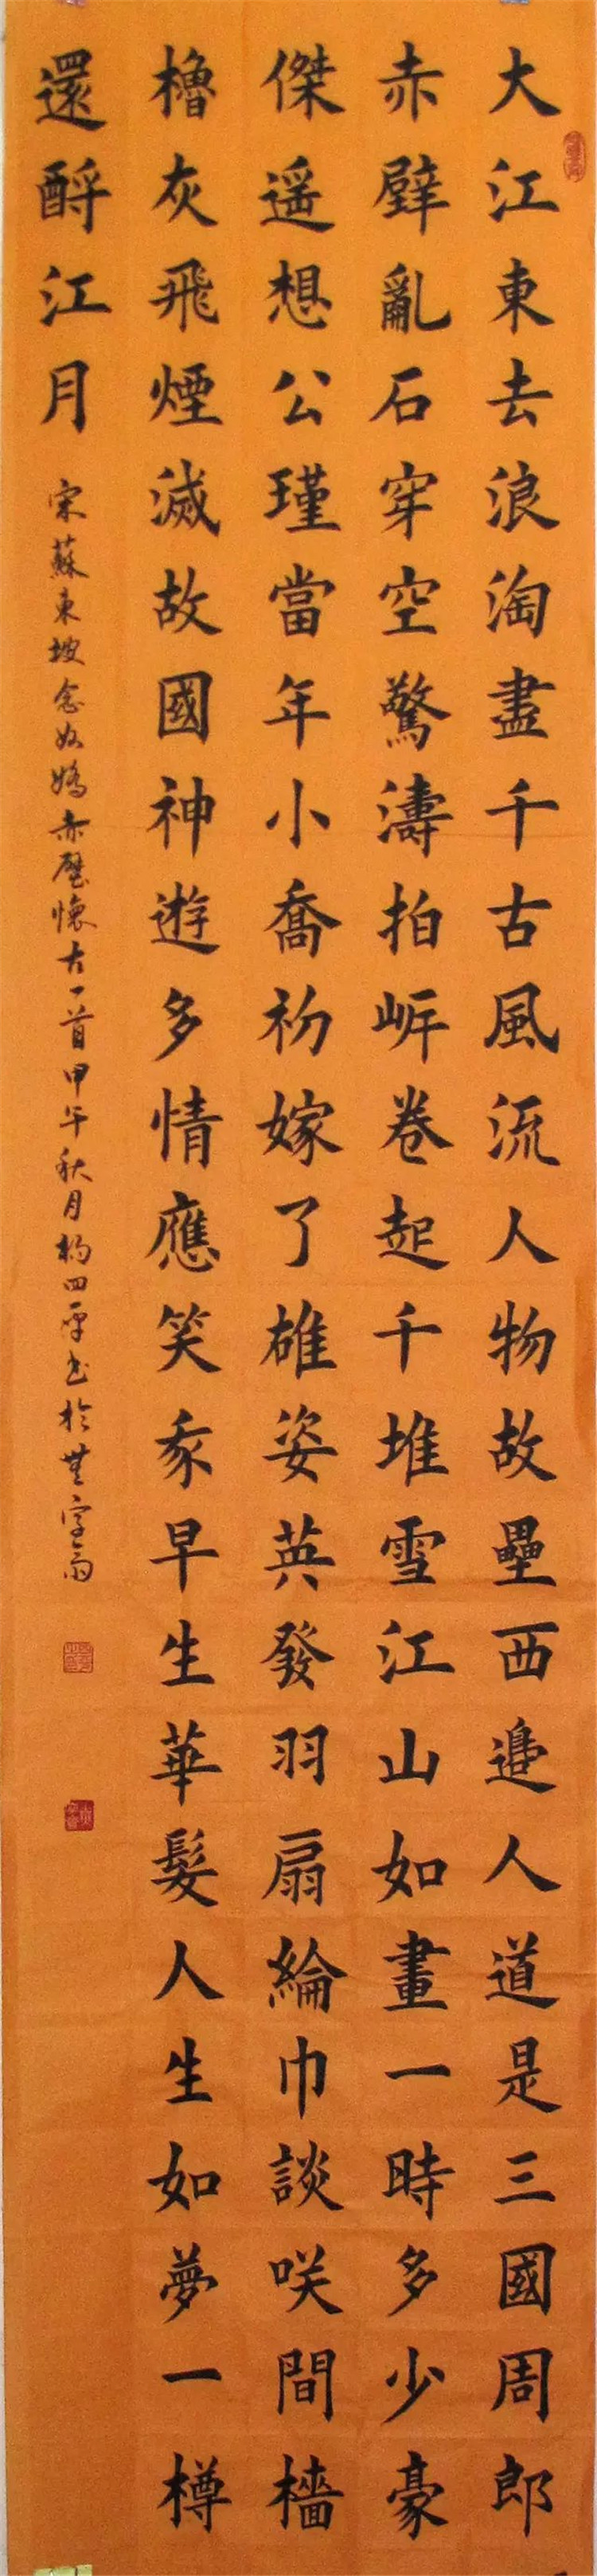 大江東去浪淘盡千古風流人物故壘西邊人道是三國周郎
赤壁亂石穿空驚濤拍岸卷起千堆雪江山如畫一時多少豪
傑遥想公瑾當年小喬初嫁了雄姿英發羽扇綸巾談咲間檣
櫓灰飛煙滅故國神遊多情應笑我早生華髮人生如夢一樽
還酹江月
宋蘇東坡念奴嬌赤壁懷古一首甲午秋月楊四平書於無字齋